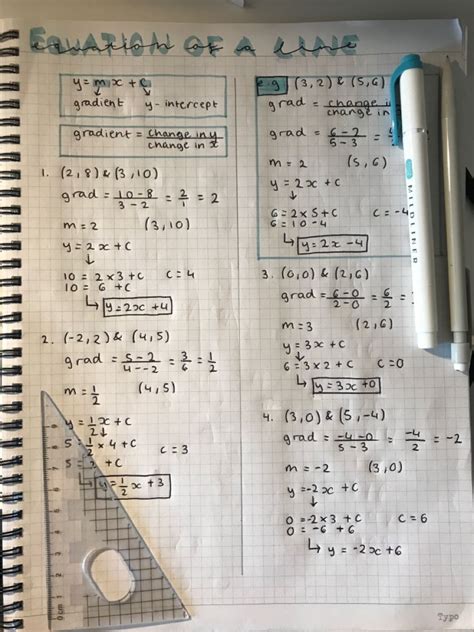 EQUATION OF A LINE
equation of a line
y = mx + c
gradient y-intercept
gradient = change in y
change in x
1. (2,8) & (3,10)
grad = 10-8 = 2 = 2
3-2 1
m = 2 (3,10)
y = 2x + c
10 = 2 x 3 + c c = 4
10 = 6 + c
↳ y = 2x + 4
2. (-2,2) & (4,5)
grad = 5-2 = 3 = 1
4--2 6 2
m = 1/2 (4,5)
y = 1/2 x + c
5 = 1/2 x 4 + c c = 3
5 = + c
↳ y = 1/2 x + 3
e.g (3,2) & (5,6)
grad = change in
change in
grad = 6-2 =
5-3
m = 2 (5,6)
y = 2x + c
6 = 2 x 5 + c c = -4
6 = 10 - 4
↳ y = 2x - 4
3. (0,0) & (2,6)
grad = 6-0 = 6 =
2-0 2
m = 3 (2,6)
y = 3x + c
6 = 3 x 2 + c c = 0
↳ y = 3x + 0
4. (3,0) & (5,-4)
grad = -4-0 = -4 = -2
5-3 2
m = -2 (3,0)
y = -2x + c
0 = -2 x 3 + c c = 6
0 = -6 + 6
↳ y = -2x + 6
MILDLINER
0cm 1 2 3 4 5
Typo